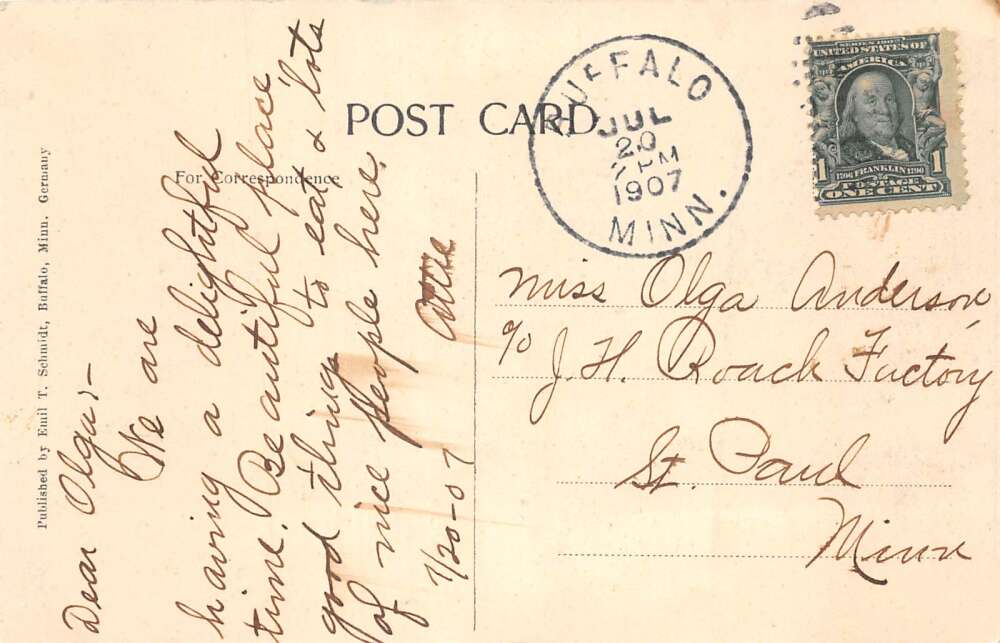 POST CARD
For Correspondence
Published by Emil T. Schmidt, Buffalo, Minn. Germany
BUFFALO
JUL
20
7 PM
1907
MINN.
SERIES 1902
UNITED STATES OF
AMERICA
1 1706 FRANKLIN 1790 1
POSTAGE
ONE CENT
Dear Olga:-
We are
having a delightful
time. Beautiful place
good things to eat & lots
of nice people here.
7/20-07
Miss Olga Anderson,
c/o J. H. Roach Factory
St. Paul
Minn